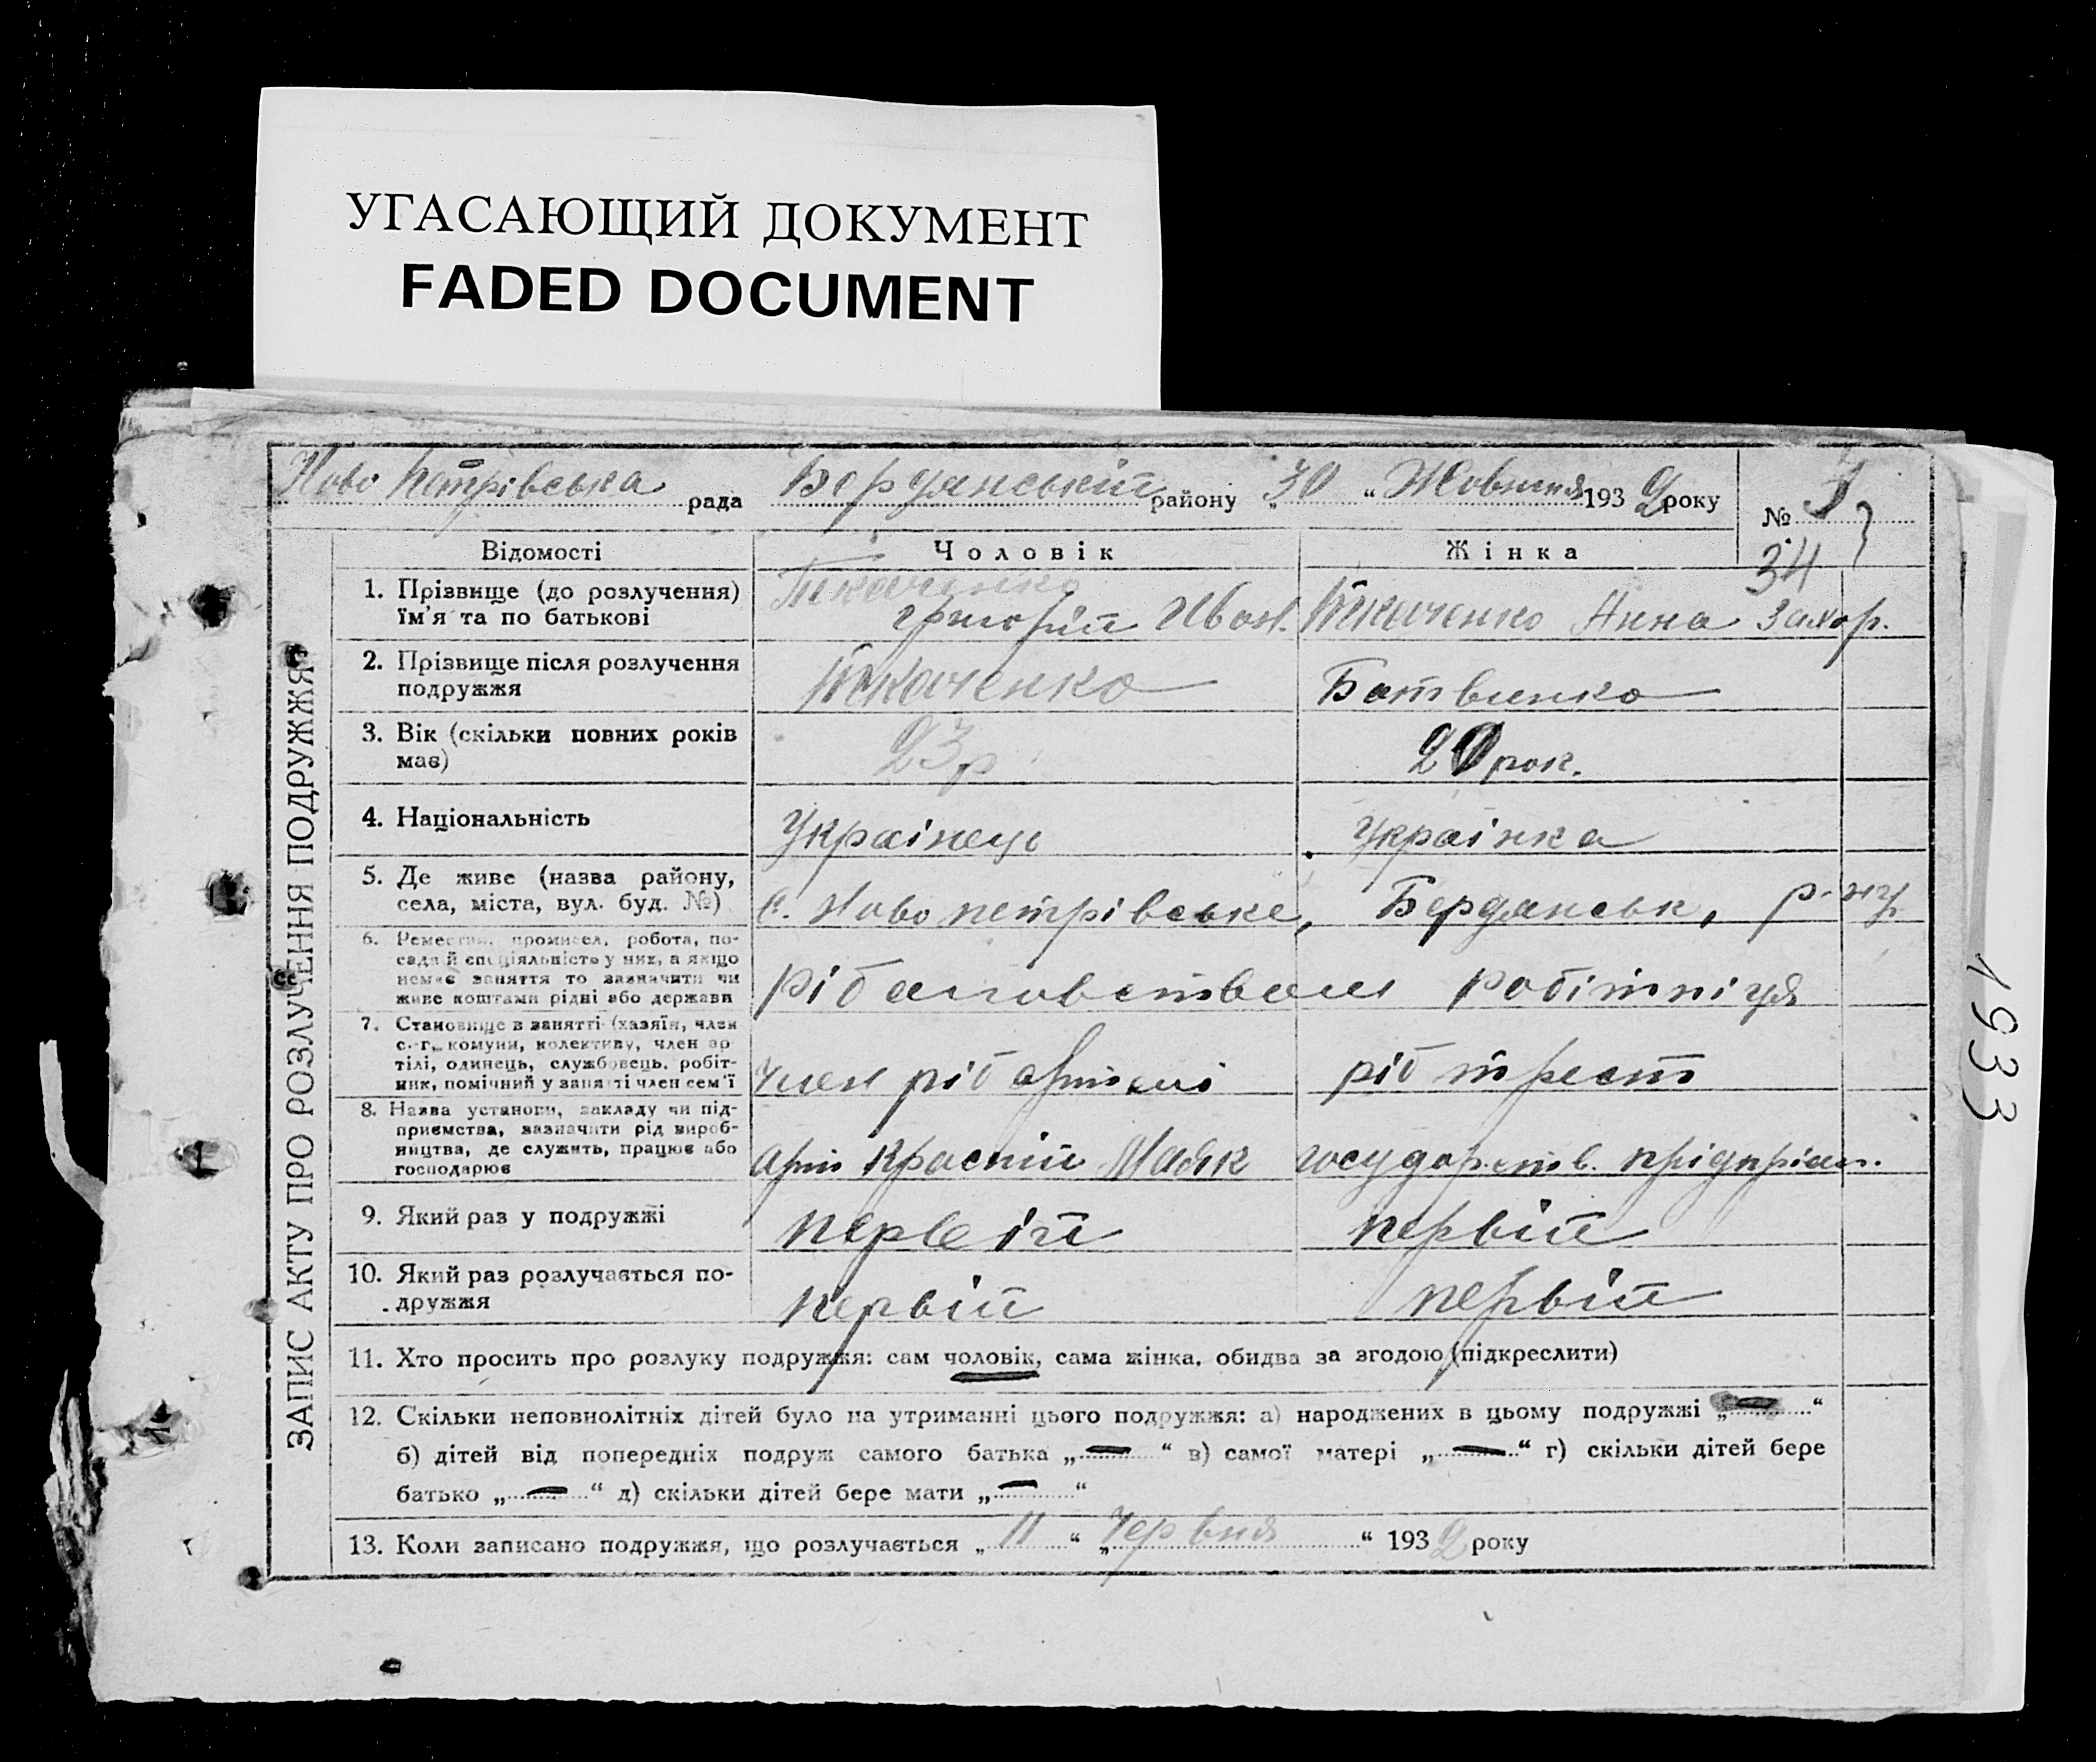 УГАСАЮЩИЙ ДОКУМЕНТ
FADED DOCUMENT
Ново Петрівська рада Бердянський району „30“ Жовтня 1932 року
№ 3
34
ЗАПИС АКТУ ПРО РОЗЛУЧЕННЯ ПОДРУЖЖЯ
Відомості Чоловік Жінка
1. Прізвище (до розлучення) Ткаченко
їм'я та по батькові Григорій Іван. Ткаченко Анна Захар.
2. Прізвище після розлучення
подружжя Ткаченко Батвинко
3. Вік (скільки повних років
має) 23 р 20 рок.
4. Національність Українець Українка
5. Де живе (назва району,
села, міста, вул. буд. №) с. Ново петрівське, Бердянськ, р-ну
6. Ремество, промисел, робота, по-
сада й спеціяльність у них, а якщо
немає заняття то зазначити чи
живе коштами рідні або держави робітніця
7. Становище в занятті (хазяїн, член
с.-г. комуни, колективу, член ар
тілі, одинець, службовець, робіт-
ник, помічний у занятті член сем'ї член ріб артелі ріб трест
8. Назва установи, закладу чи під-
приємства, зазначити рід вироб-
ництва, де служить, працює або
господарює арт Красний Маяк государств. прідпріят.
9. Який раз у подружжі первій первій
10. Який раз розлучається по-
дружжя первій первій
11. Хто просить про розлуку подружжя: сам чоловік, сама жінка, обидва за згодою (підкреслити)
12. Скільки неповнолітніх дітей було на утриманні цього подружжя: а) народжених в цьому подружжі „—“
б) дітей від попередніх подруж самого батька „—“ в) самої матері „—“ г) скільки дітей бере
батько „—“ д) скільки дітей бере мати „—“
13. Коли записано подружжя, що розлучається „11“ „Червня“ 1932 року
1933